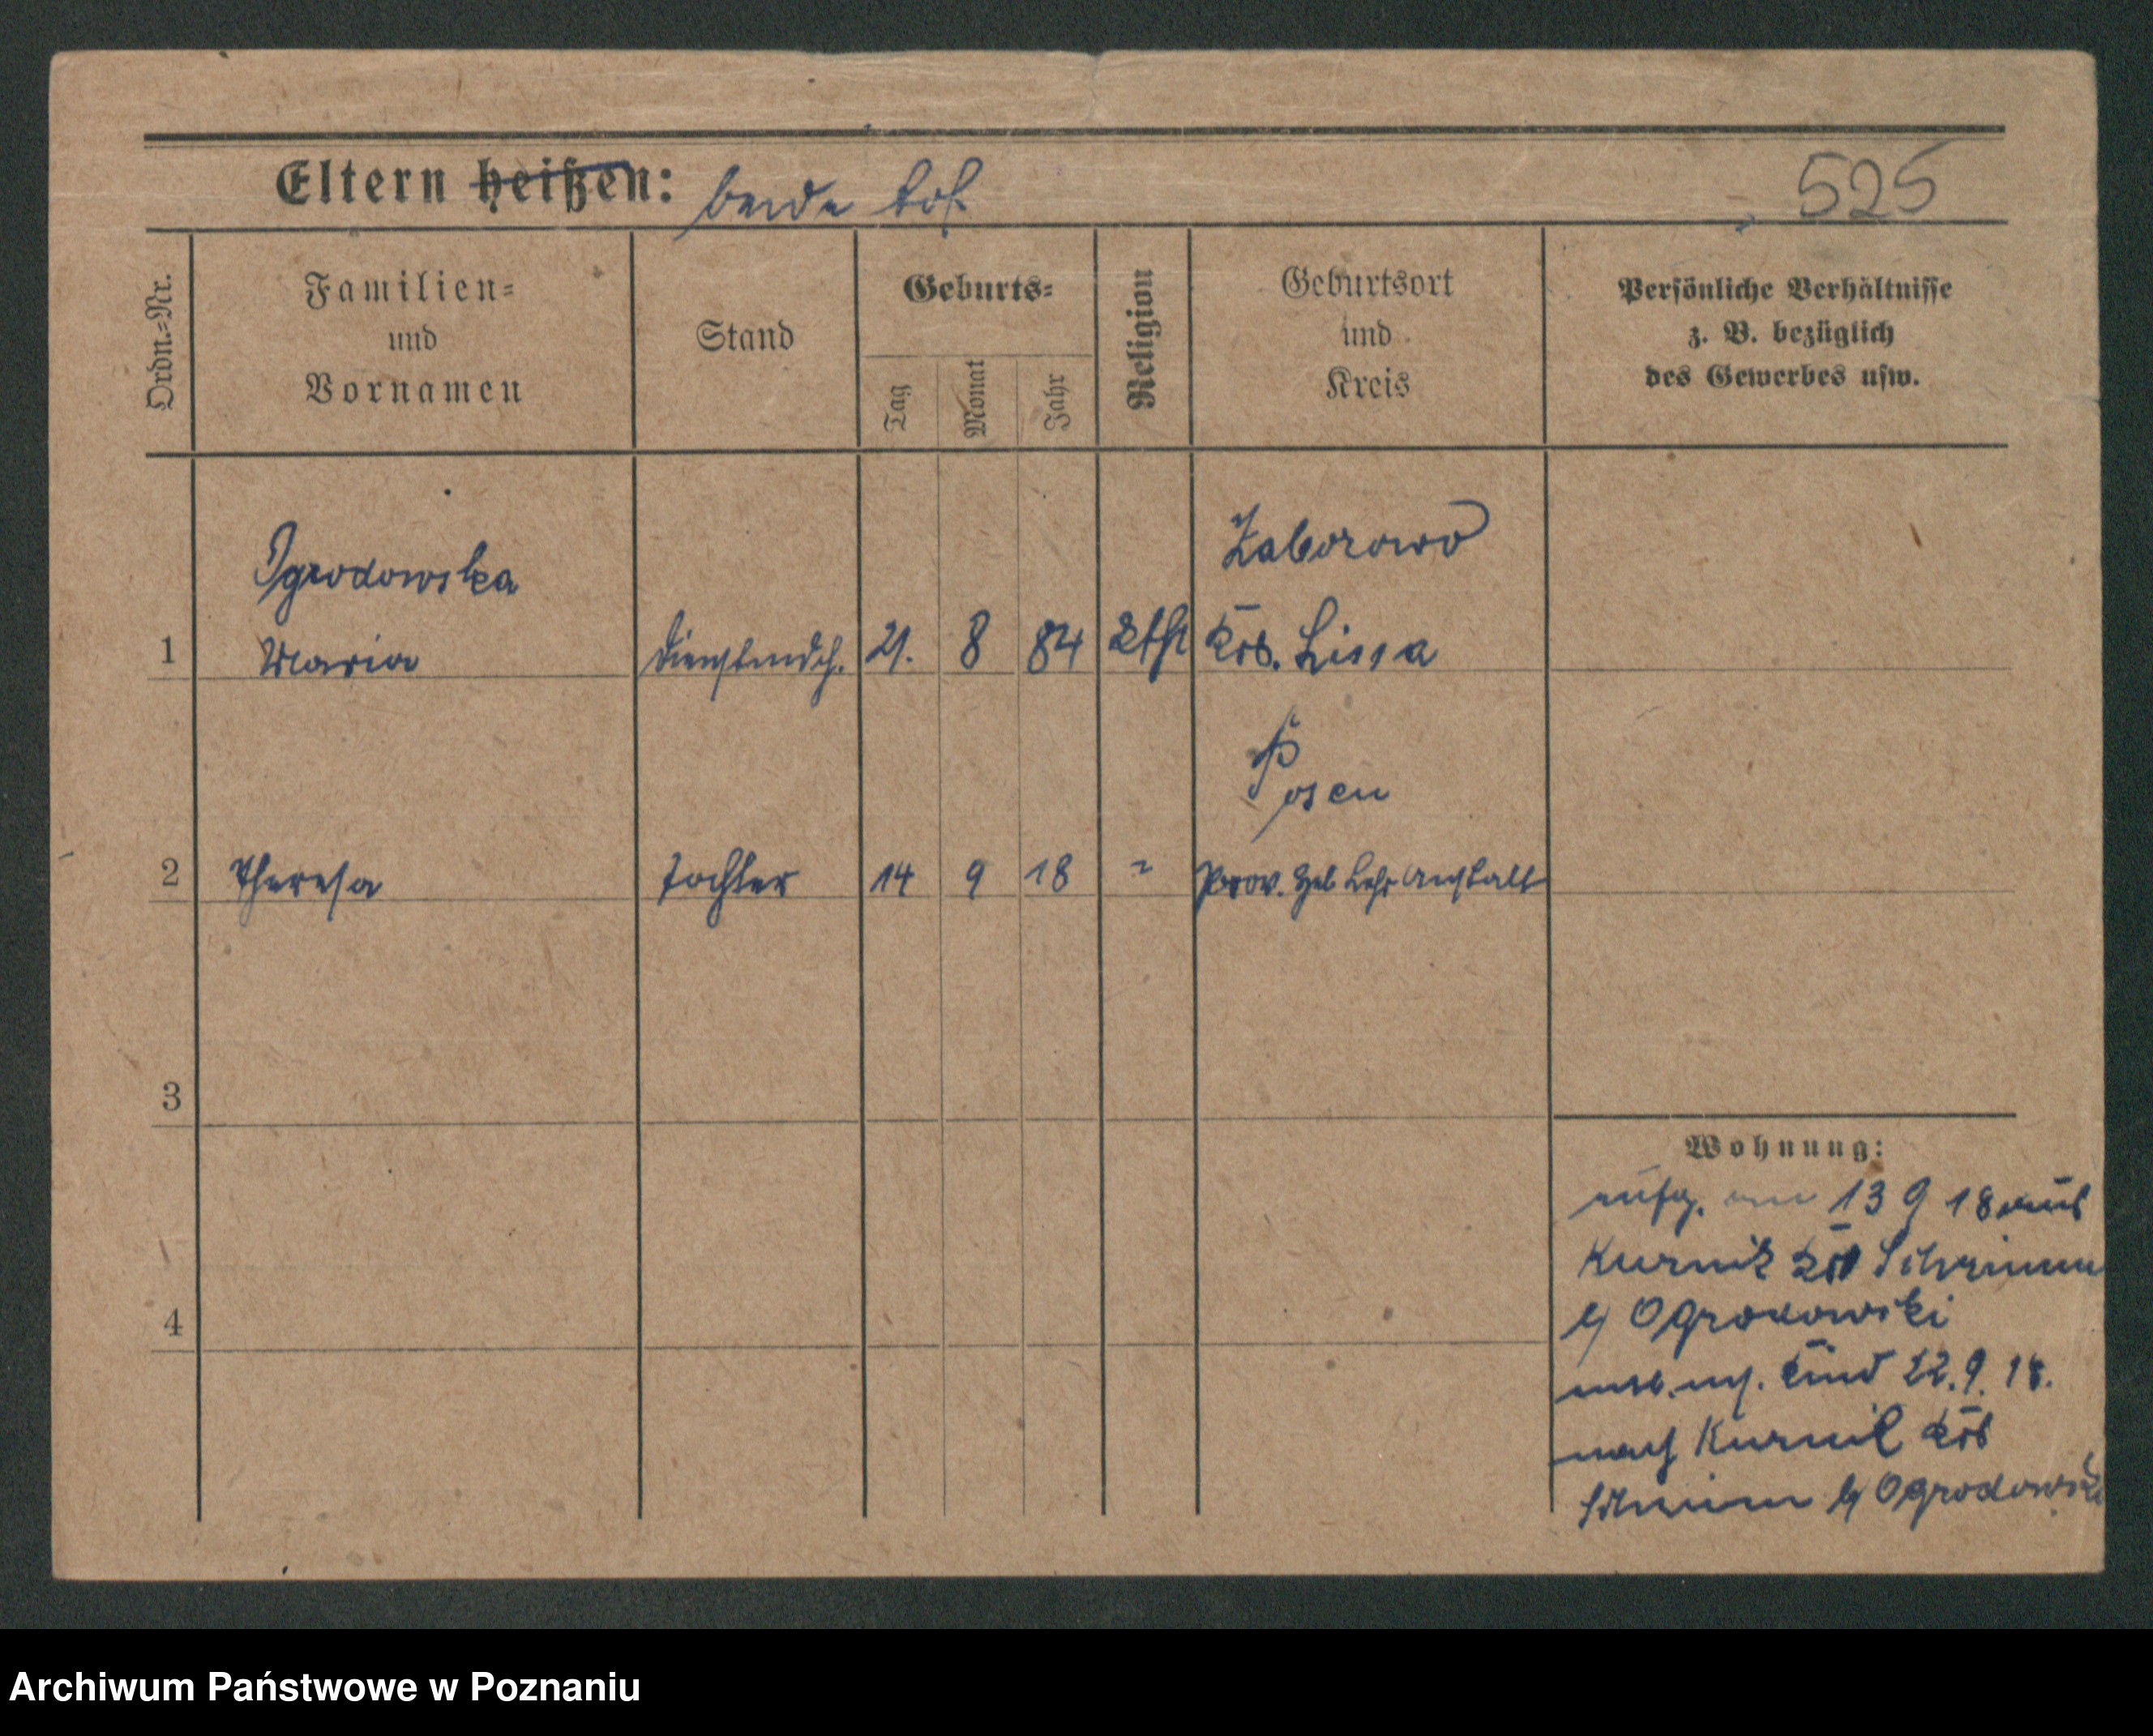 Eltern heißen: beide tot
525
Ordn.=Nr.
Familien=
und
Vornamen
Stand
Geburts=
Tag
Monat
Jahr
Religion
Geburtsort
und
Kreis
Persönliche Verhältnisse
z. B. bezüglich
des Gewerbes usw.
Ogrodowska
Zaborowo
1 Maria Dienstmdch. 21. 8 84 kth Krs. Lissa
Posen
2 Theresa Tochter 14 9 18 " Prov. Heb Lehr Anstalt
3
Wohnung:
zugz. am 13 9 18 aus
Kurnik Krs Schrimm
b/ Ogrodowski
4
Kind 22.9.18.
nach Kurnik Krs
Schrimm b/ Ogrodowski
Archiwum Państwowe w Poznaniu